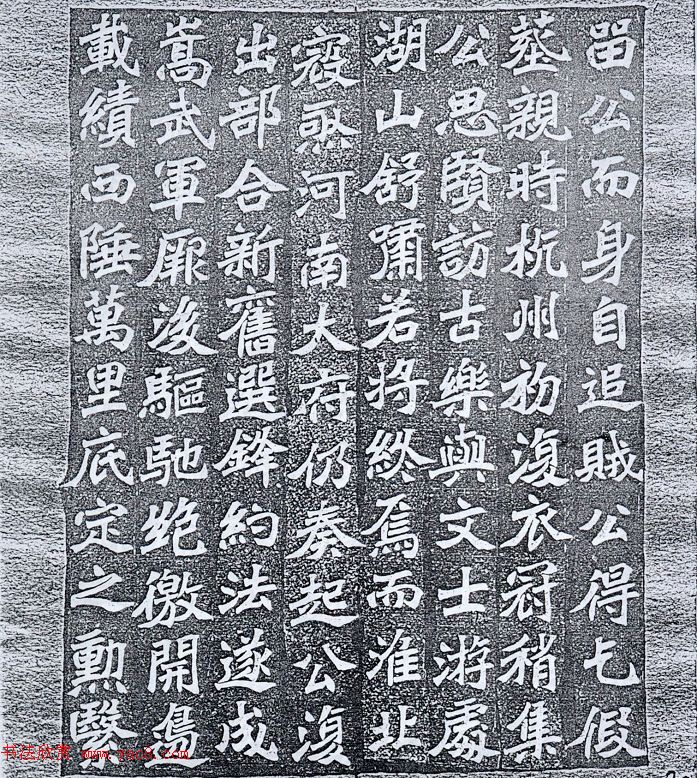 畱公而身自追賊公得乞假
葬親時杭州初復衣冠稍集
公思賢訪古樂與文士游處
湖山舒嘯若將終焉而淮北
寇亟河南太府仍奏起公復
出部合新舊選鋒約法遂成
嵩武軍厥後驅馳絕徼開
載績西陲萬里底定之勳
书法欣赏 www.yac8.com